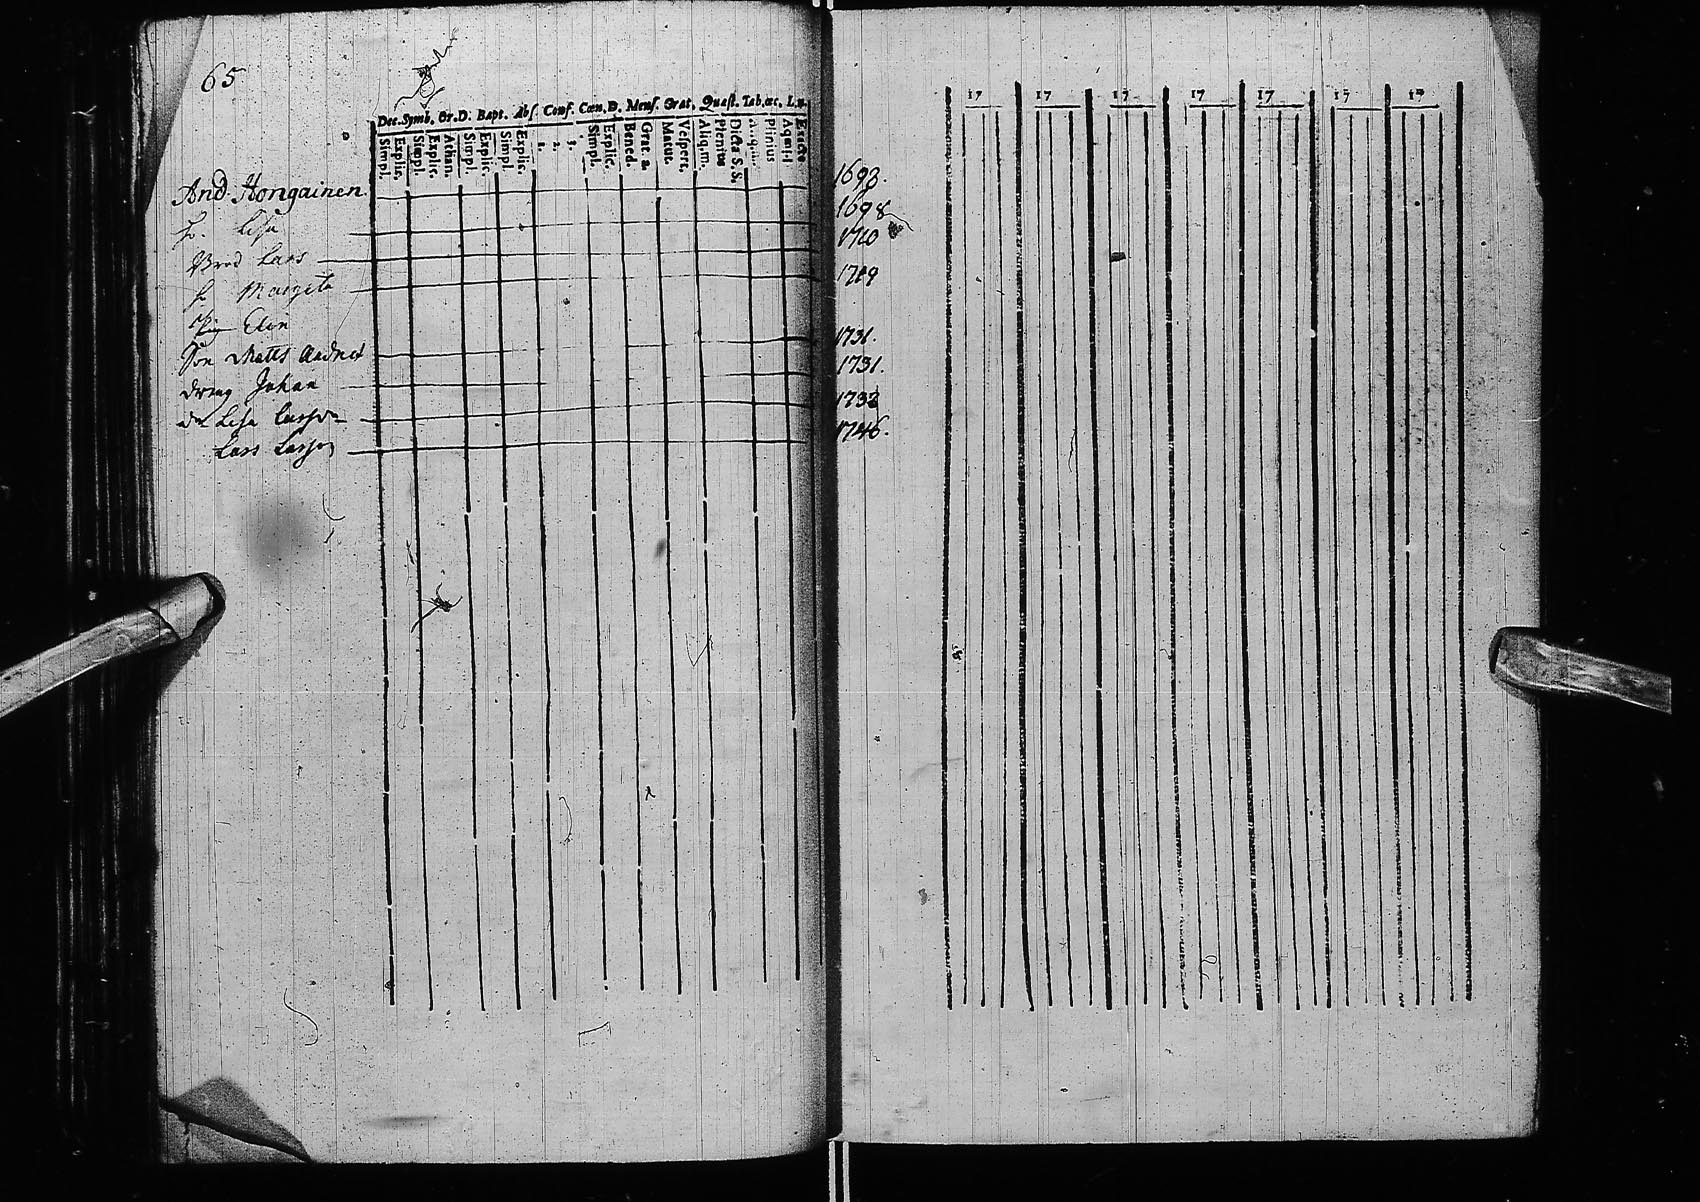 65
Dec. Symb. Or. D. Bapt. Abs. Conf. Cœn. D. Mens. Orat. Quæst. Tab. œc. L. n.
Simpl. Explic. Simpl. Explic. Athan. Simpl. Explic. Simpl. Explic. 1. 2. 3. Simpl. Explic. Bened. Grat. a. Matut. Vespert. Aliq.m. Plenius Dicta S. S. Aliq.m. Plenius Exacte
And. Hongainen. 1693.
h. Lisa 1698
Brod Lars 1710
h Margeta 1719
Pig Elin
Son Matts Andrs 1731.
dreng Johan 1731.
dr Lisa Larsdr 1733
Lars Larsson 1746.
17 17 17 17 17 17 17